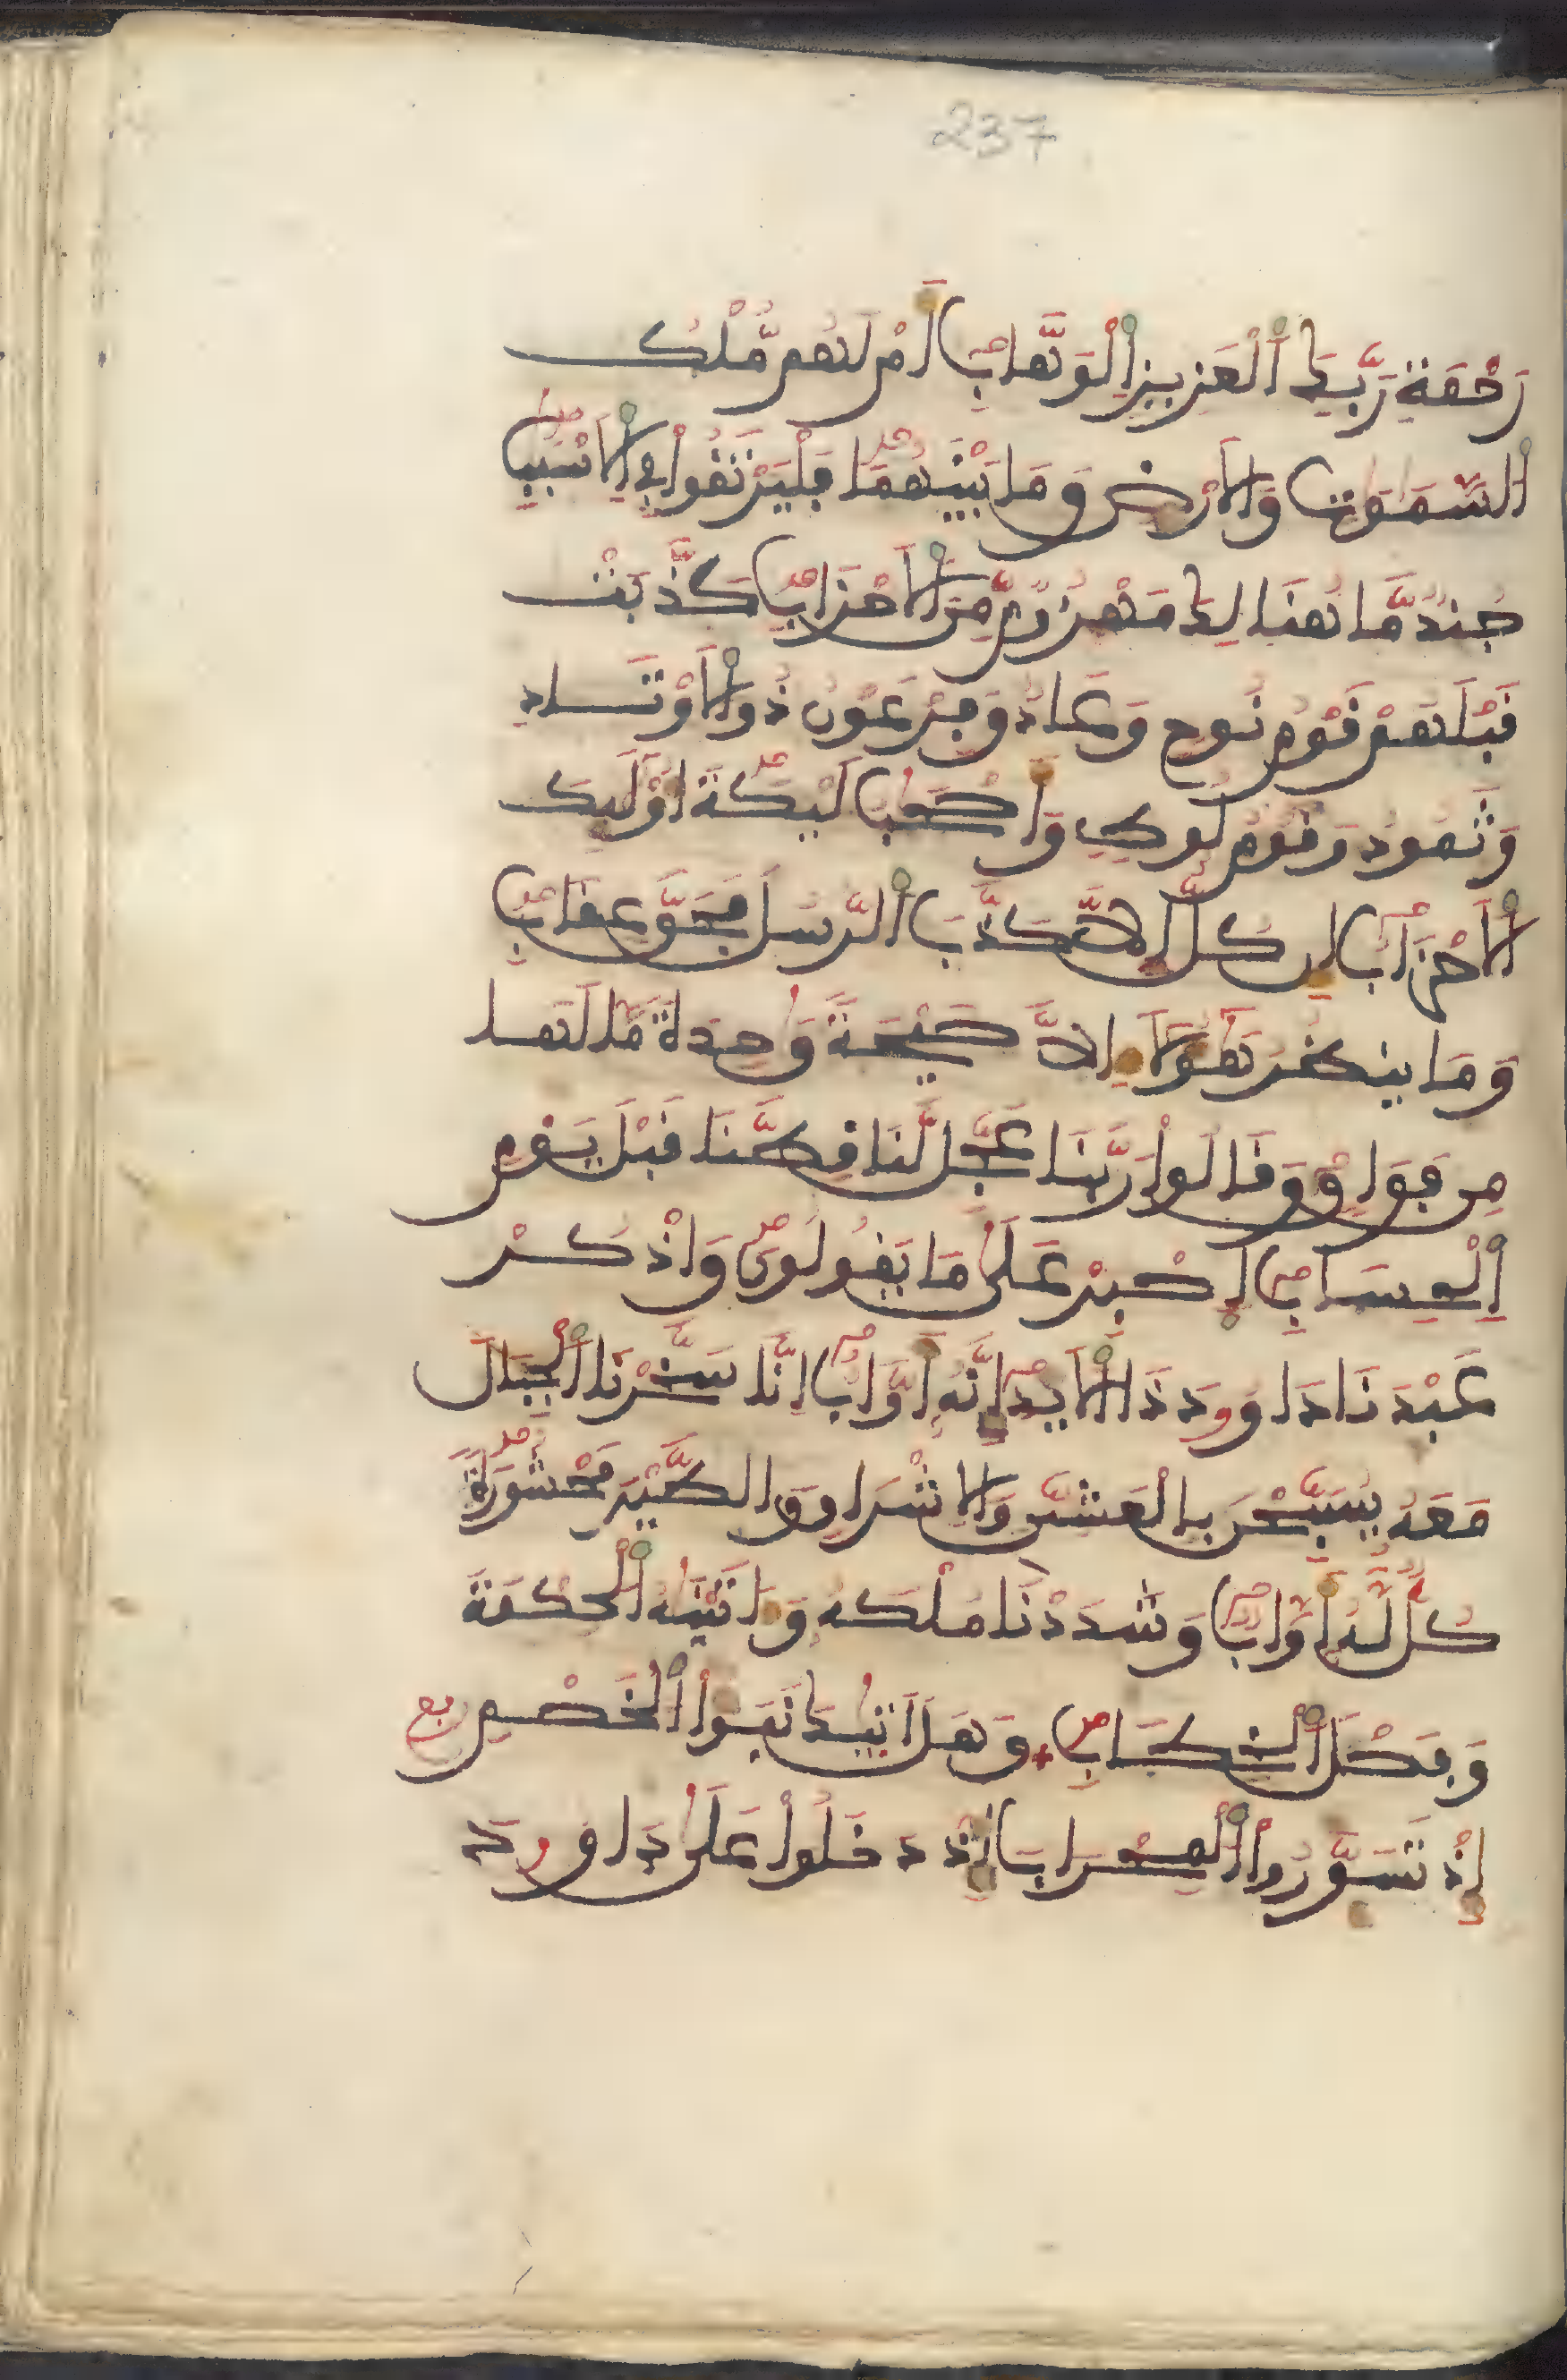 237
رَحْمَةِ رَبِّكَ ٱلْعَزِيزِ ٱلْوَهَّابِ أَمْ لَهُم مُّلْكُ
ٱلسَّمَٰوَٰتِ وَٱلْأَرْضِ وَمَا بَيْنَهُمَا فَلْيَرْتَقُوا۟ فِے ٱلْأَسْبَٰبِ
جُندٌ مَّا هُنَالِكَ مَهْزُومٌ مِّنَ ٱلْأَحْزَابِ كَذَّبَتْ
قَبْلَهُمْ قَوْمُ نُوحٍ وَعَادٌ وَفِرْعَوْنُ ذُو ٱلْأَوْتَادِ
وَثَمُودُ وَقَوْمُ لُوطٍ وَأَصْحَٰبُ لَيْكَةَ أُوْلَٰٓئِكَ
ٱلْأَحْزَابُ إِن كُلٌّ إِلَّا كَذَّبَ ٱلرُّسُلَ فَحَقَّ عِقَابِ
وَمَا يَنظُرُ هَٰٓؤُلَآءِ إِلَّا صَيْحَةً وَٰحِدَةً مَّا لَهَا
مِن فَوَاقٍ وَقَالُوا۟ رَبَّنَا عَجِّل لَّنَا قِطَّنَا قَبْلَ يَوْمِ
ٱلْحِسَابِ ٱصْبِرْ عَلَىٰ مَا يَقُولُونَ وَٱذْكُرْ
عَبْدَنَا دَاوُۥدَ ذَا ٱلْأَيْدِ إِنَّهُۥ أَوَّابٌ إِنَّا سَخَّرْنَا ٱلْجِبَالَ
مَعَهُۥ يُسَبِّحْنَ بِالْعَشِىِّ وَٱلْإِشْرَاقِ وَٱلطَّيْرَ مَحْشُورَةً
كُلٌّ لَّهُۥ أَوَّابٌ وَشَدَدْنَا مُلْكَهُۥ وَءَاتَيْنَٰهُ ٱلْحِكْمَةَ
وَفَصْلَ ٱلْخِطَابِ وَهَلْ أَتَىٰكَ نَبَؤُا۟ ٱلْخَصْمِ ربع
إِذْ تَسَوَّرُوا۟ ٱلْمِحْرَابَ إِذْ دَخَلُوا۟ عَلَىٰ دَاوُۥدَ